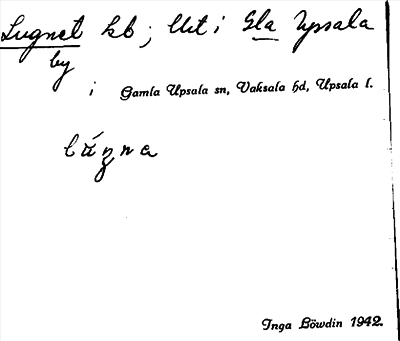 Lugnet hb; Utt i Gla Upsala
by
i Gamla Upsala sn, Vaksala hd, Upsala l.
Inga Löwdin 1942.